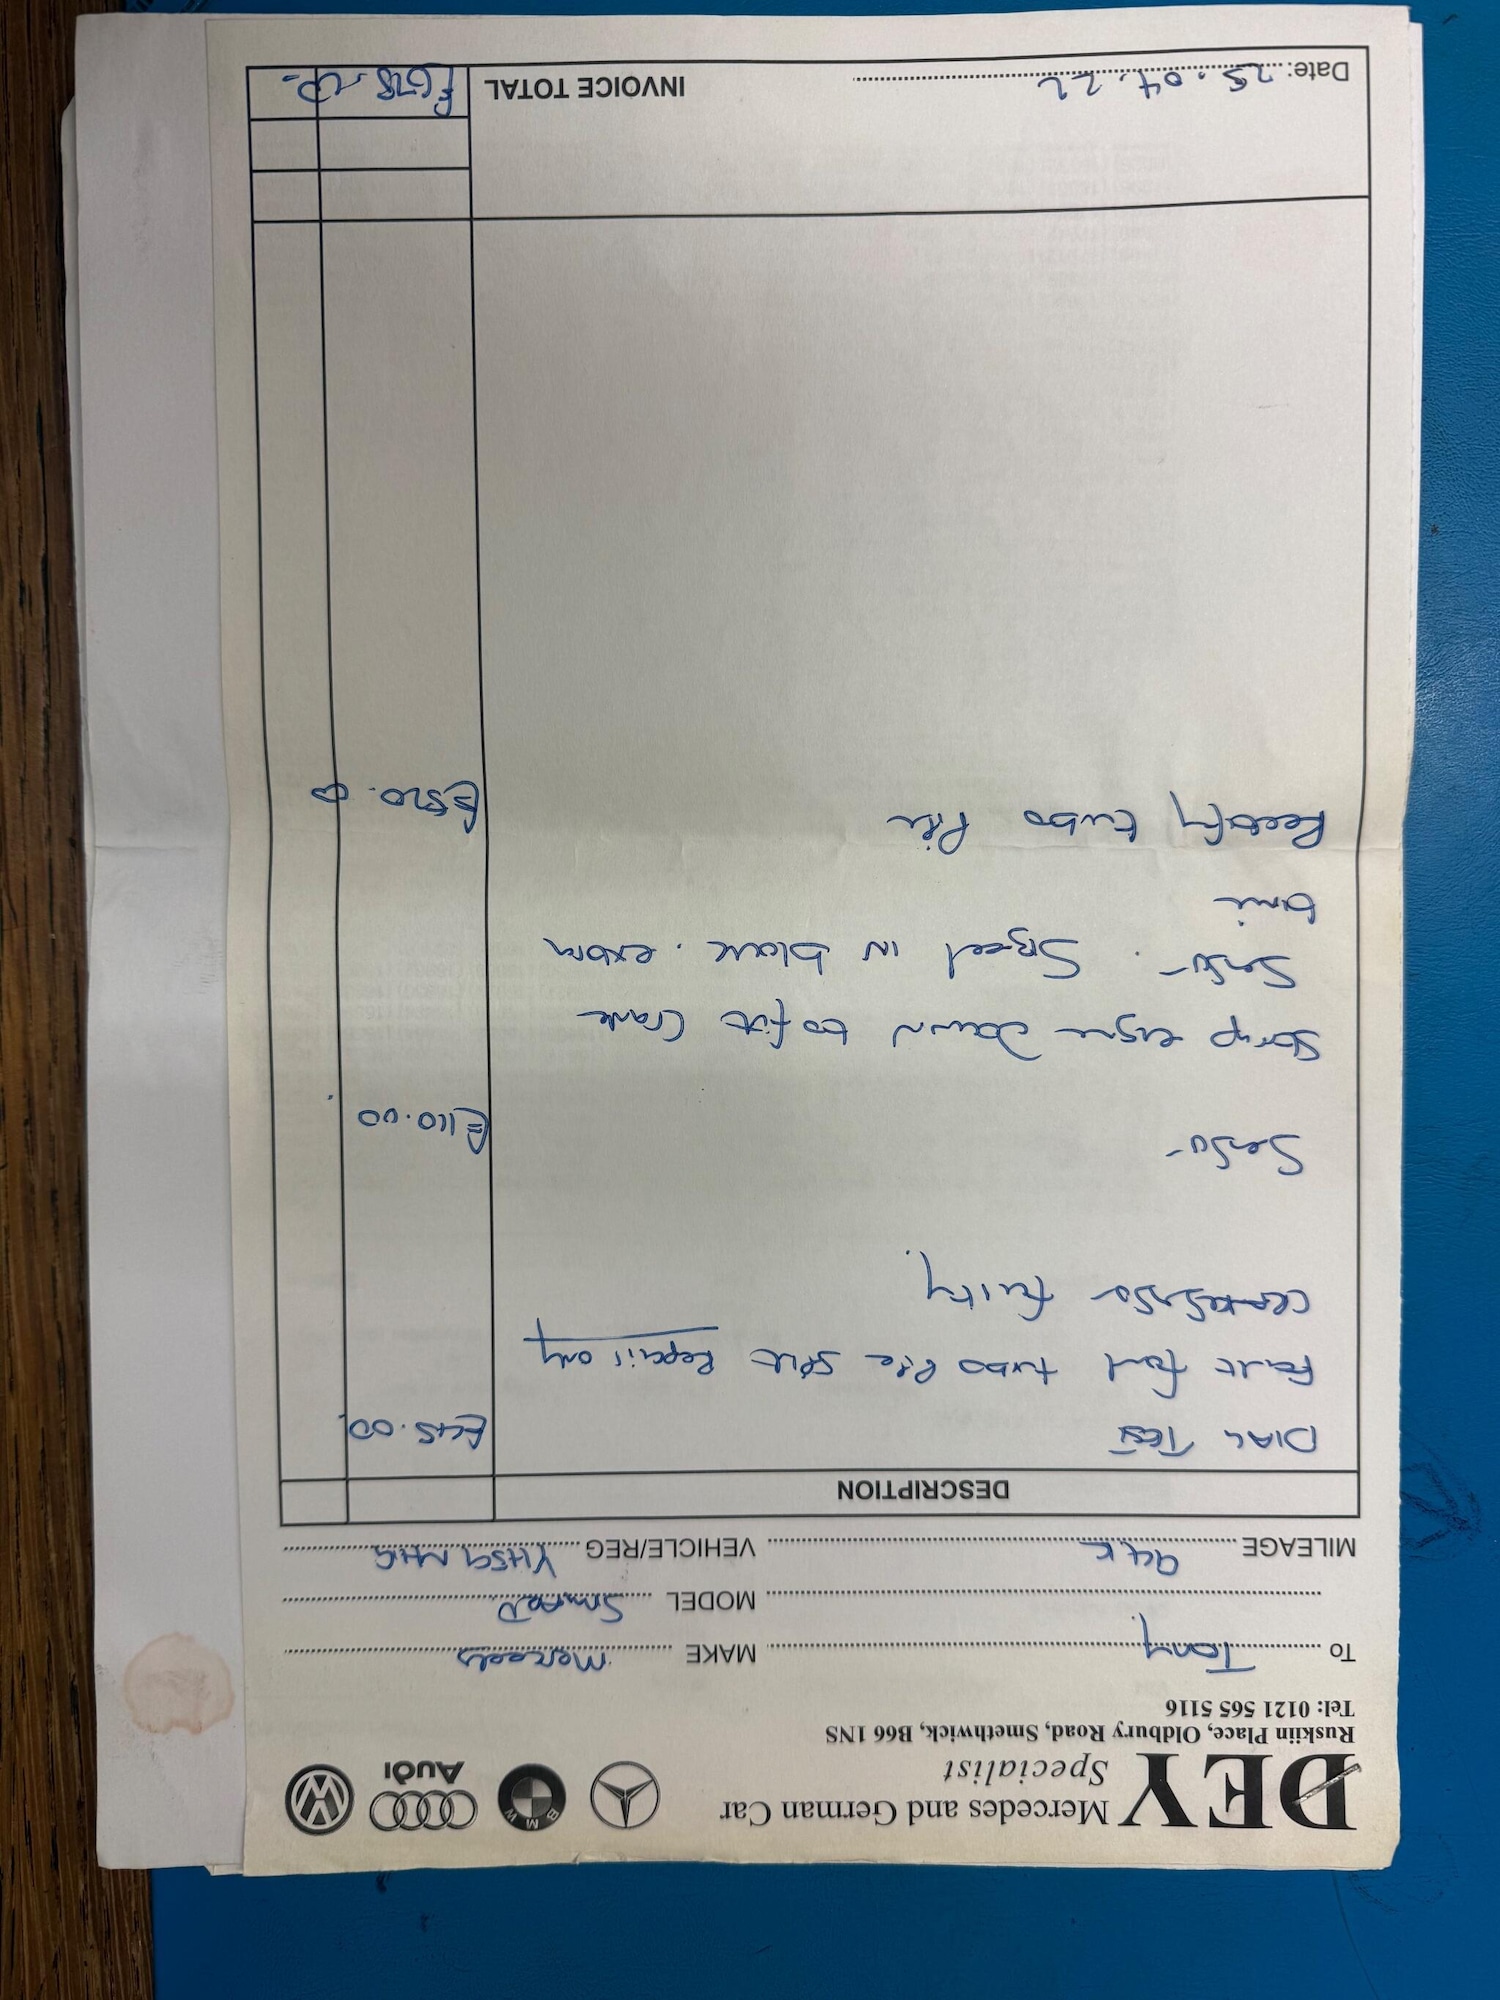 DEY Mercedes and German Car
Specialist
Audi
BMW
Ruskiin Place, Oldbury Road, Smethwick, B66 1NS
Tel: 0121 565 5116
TO Tony. MAKE Mercedes
MODEL
MILEAGE 94K VEHICLE/REG
DESCRIPTION
DIAG TEST £45.00
Fault found turbo Pipe split Repair only
cranksensor faulty.
Sensor £110.00
Strip engine down to fit Crank
Sensor. Siezed in block. extra
time
Rectify turbo Pipe £520.00
Date: 25.04.22 INVOICE TOTAL £675.00